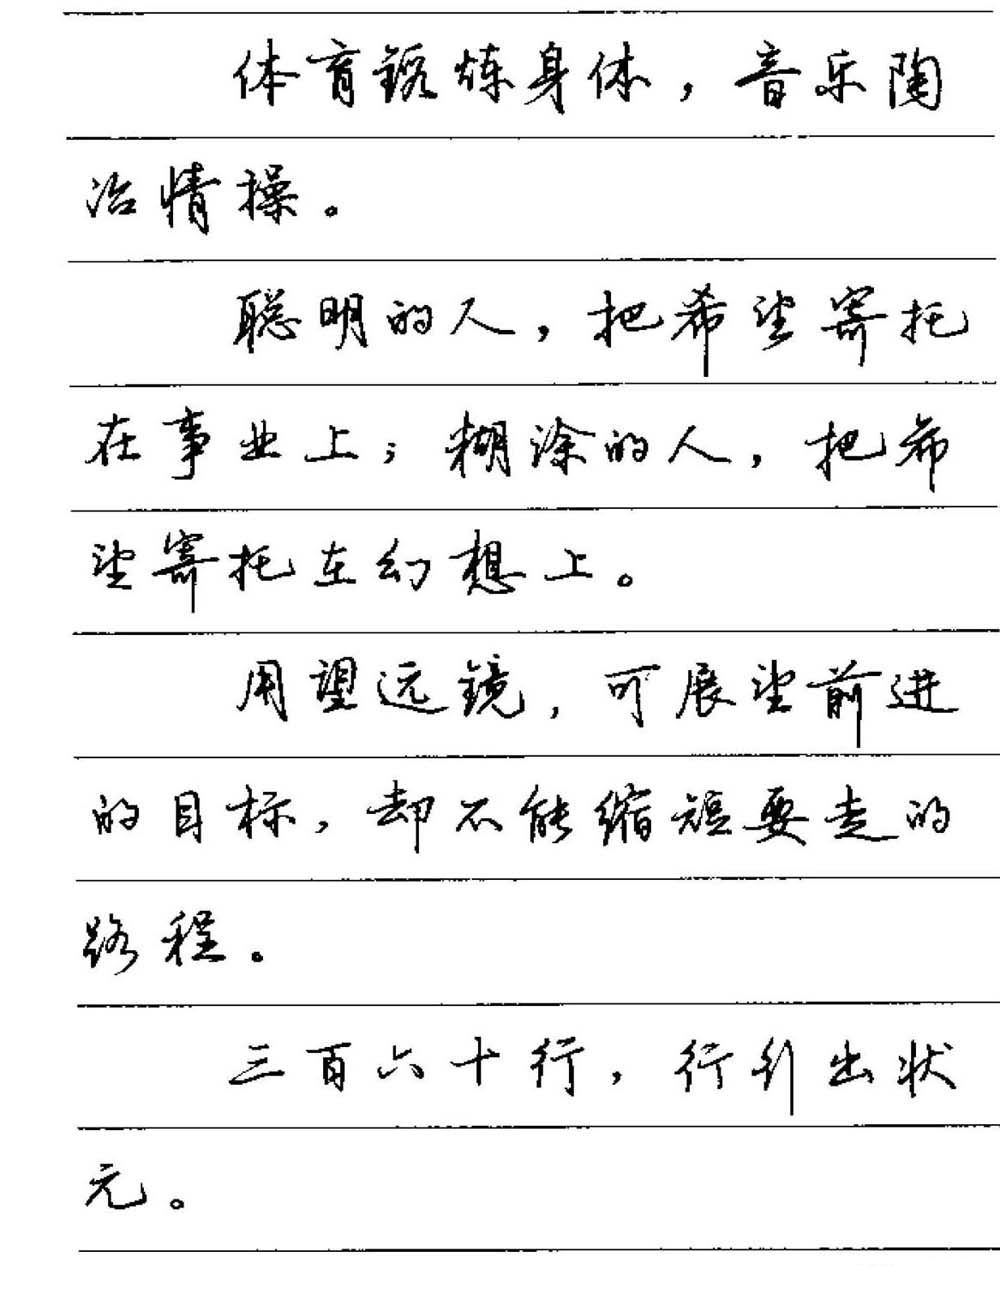 体育锻炼身体，音乐陶
冶情操。
聪明的人，把希望寄托
在事业上；糊涂的人，把希
望寄托在幻想上。
用望远镜，可展望前进
的目标，却不能缩短要走的
路程。
三百六十行，行行出状
元。